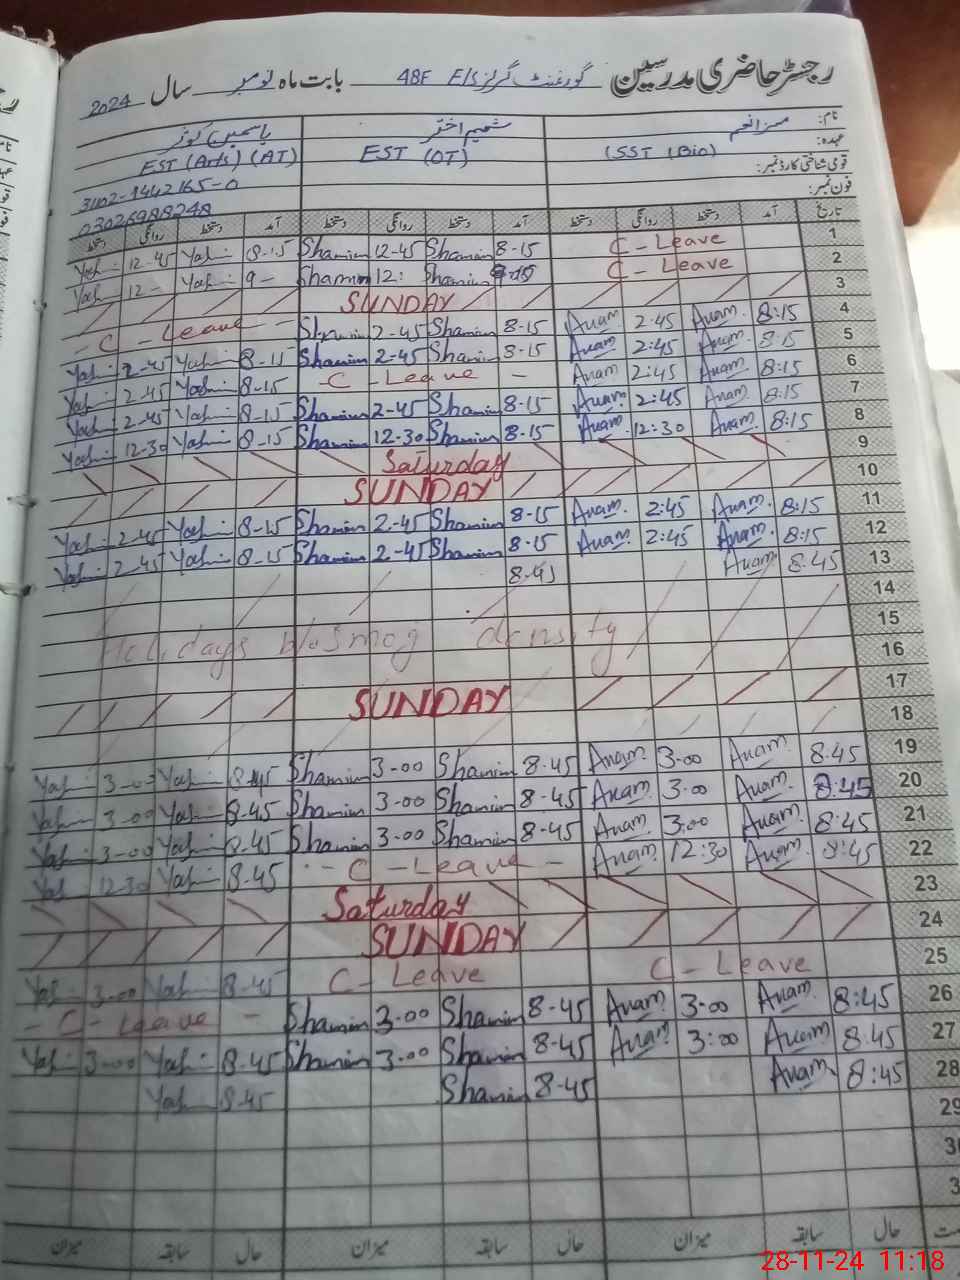 رجسٹر حاضری مدرسین گورنمنٹ گرلز E/S 48F بابت ماہ نومبر سال 2024
نام: مسز انعم شمیم اختر یاسمین کوثر
عہدہ: (SST (Bio) EST (OT) EST (Arts) (AT)
قومی شناختی کارڈ نمبر:
فون نمبر: 03026988248
تاریخ آمد دستخط روانگی دستخط آمد دستخط روانگی دستخط آمد دستخط روانگی دستخط
1 C - Leave 8-15 Shamim 12-45 Shamim 8-15 Yash 12-45 Yash
2 C - Leave Shamim 12: Shamim 9- Yash 12- Yash
3 SUNDAY
4 8:15 Anam. 2:45 Anam. 8-15 Shamim 2-45 Shamim - C - Leave -
5 8:15 Anam. 2:45 Anam. 8-15 Shamim 2-45 Shamim 8-15 Yash 2-45 Yash
6 8:15 Anam. 2:45 Anam - C - Leave - 8-15 Yash 2-45 Yash
7 8:15 Anam. 2:45 Anam. 8-15 Shamim 2-45 Shamim 8-15 Yash 2-45 Yash
8 8:15 Anam. 12:30 Anam. 8-15 Shamim 12-30 Shamim 8-15 Yash 12-30 Yash
9 Saturday
10 SUNDAY
11 8:15 Anam. 2:45 Anam. 8-15 Shamim 2-45 Shamim 8-15 Yash 2-45 Yash
12 8:15 Anam. 2:45 Anam. 8-15 Shamim 2-45 Shamim 8-15 Yash 2-45 Yash
13 8.45 Anam. 8-45
14
15 Holidays smog density
16
17 SUNDAY
18
19 8.45 Anam. 3.00 Anam. 8.45 Shamim 3-00 Shamim 8.45 Yash 3-00 Yash
20 8:45 Anam. 3.00 Anam. 8-45 Shamim 3-00 Shamim 8.45 Yash 3-00 Yash
21 8:45 Anam. 3:00 Anam. 8-45 Shamim 3-00 Shamim 8-45 Yash 3-00 Yash
22 8:45 Anam. 12:30 Anam. - C - Leave - 8-45 Yash 12-30 Yash
23 Saturday
24 SUNDAY
25 C - Leave C - Leave 8-45 Yash 3-00 Yash
26 8:45 Anam. 3.00 Anam. 8-45 Shamim 3.00 Shamim - C - Leave -
27 8:45 Anam 3:00 Anam. 8-45 Shamim 3.00 Shamim 8-45 Yash 3-00 Yash
28 8:45 Anam. 8-45 Shamim 8-45 Yash
29
حال سابقہ میزان حال سابقہ میزان حال سابقہ میزان
28-11-24 11:18